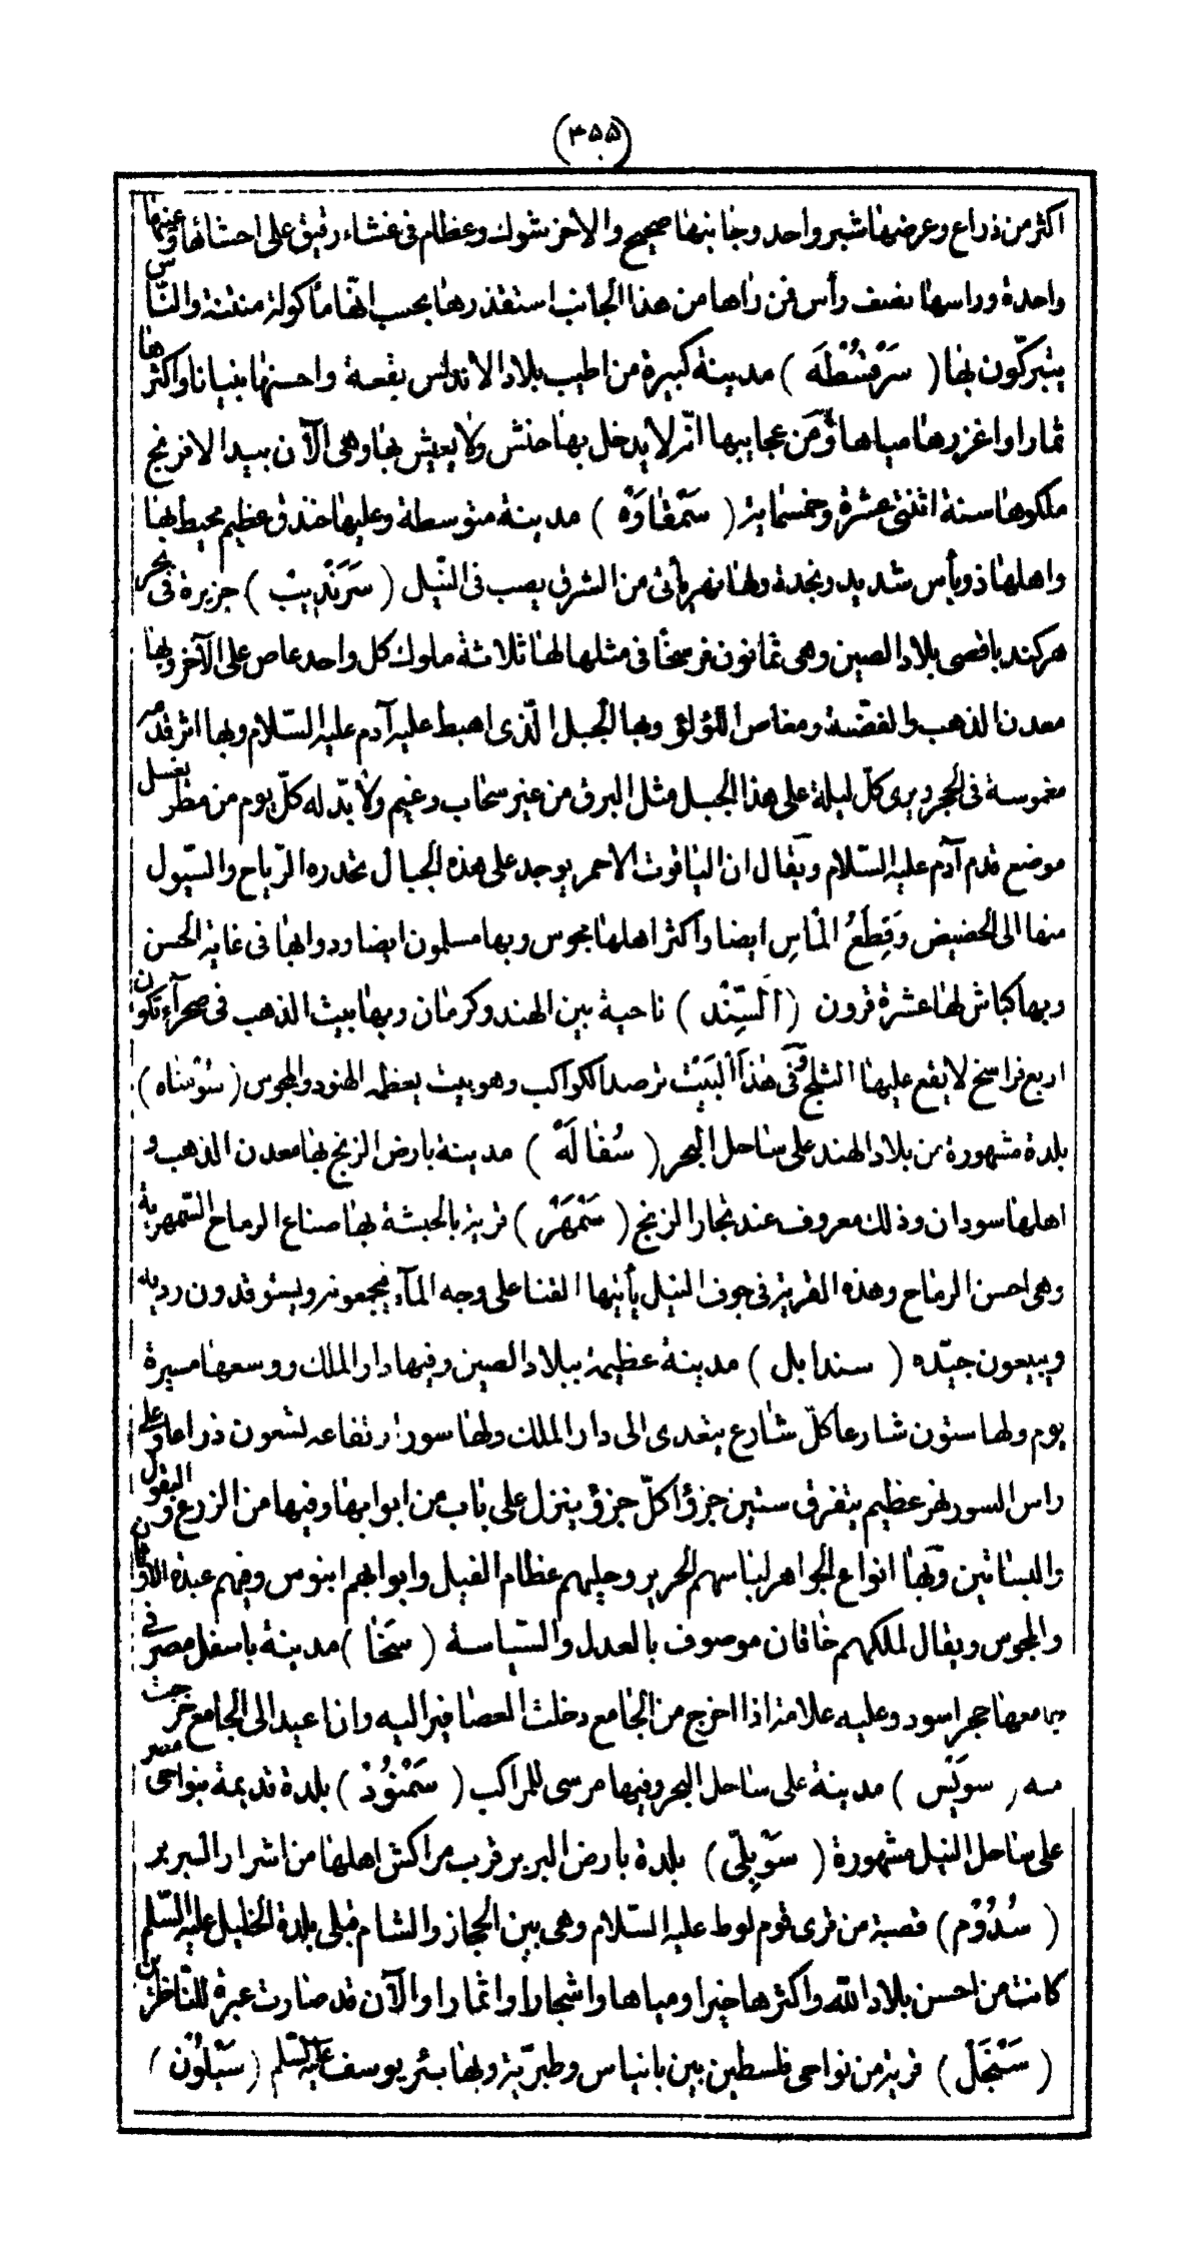 (٤٥٥)
اكثر من ذراع وعرضها شبر واحد وجانبها صحيح والاخر شوك وعظام فى غشاء رقيق على احشائها وعينها
واحدة وراسها نصف رأس فمن راها من هذا الجانب استقذرها بحسب انها مأكولة منتنة والناس
يتبركون بها ( سَرَقُسْطَه ) مدينة كبيرة من اطيب بلاد الأندلس بقعة واحسنها بنيانا واكثرها
ثمارا واغزرها مياها ومن عجايبها انه لا يدخل بها حنش ولا يعيش بها وهى الآن بيد الافرنج
ملكوها سنة اثنتى عشرة وخمسماية ( سَمْقَاوَة ) مدينة متوسطة وعليها خندق عظيم محيط بها
واهلها ذو بأس شديد ونجدة ولها نهر يأتى من الشرق يصب فى النيل ( سَرَنْدِيبْ ) جزيرة فى بحر
هركند باقصى بلاد الصين وهى ثمانون فرسخا فى مثلها لها ثلاثة ملوك كل واحد عاص على الآخر وبها
معدن الذهب والفضة ومغاص اللؤلؤ وبها الجبل الذى اهبط عليه آدم عليه السلام وبها اثر قدمه
مغموسة فى الحجر ويرى كل ليلة على هذا الجبل مثل البرق من غير سحاب وغيم ولا بد له كل يوم من مطر يغسل
موضع قدم آدم عليه السلام ويقال ان الياقوت الاحمر يوجد على هذه الجبال تحدره الرياح والسيول
منها الى الحضيض وَقِطَعُ الْمَاسِ ايضا واكثر اهلها مجوس وبها مسلمون ايضا ودوابها فى غاية الحسن
وبها كباش لها عشرة قرون ( اَلسِّنْد ) ناحية بين الهند وكرمان وبها بيت الذهب فى صحرآء تكون
اربع فراسخ لا يقع عليها الثلج وَفى هٰذَا الْبَيْت ترصد الكواكب وهو بيت يعظمه الهنود والمجوس ( سُوْسَاه )
بلدة مشهورة من بلاد الهند على ساحل البحر ( سُفَالَةْ ) مدينة بارض الزنج بها معدن الذهب و
اهلها سودان وذلك معروف عند تجار الزنج ( سَمْهَرْ ) قرية بالحبشة بها صناع الرماح السمهرية
وهى احسن الرماح وهذه القرية فى جوف النيل يأتيها القنا على وجه المآء فيجمعونه ويستوقدون رديه
ويبيعون جيّده ( سندابل ) مدينة عظيمة ببلاد الصين وفيها دار الملك ووسعها مسيرة
يوم ولها ستون شارعا كلّ شارع يتعدى الى دار الملك ولها سور ارتفاعه تسعون ذراعا وعلى
راس السور نهر عظيم يتفرق ستين جزؤا كلّ جزؤ ينزل على باب من ابوابها وفيها من الزرع والبقول
والبساتين وبها انواع الجواهر لباسهم الحرير وحليهم عظام الفيل وابوابهم ابنوس وفيهم عبدة الاوثان
والمجوس ويقال لملكهم خاقان موصوف بالعدل والسياسة ( سَخَا ) مدينة باسفل مصر فى
جامعها حجر اسود وعليه علامة اذا اخرج من الجامع دخلت العصافير اليه واذا عيد الى الجامع خرجت
منه ( سويَس ) مدينة على ساحل البحر وفيها مرسى للمراكب ( سَمْنُوُدْ ) بلدة قديمة بنواحى مصر
على ساحل النيل مشهورة ( سَوْبِلّى ) بلدة بأرض البربر قرب مراكش اهلها من اشرار البربر
( سُدُوُم ) قصبة من قرى قوم لوط عليه السلام وهى بين الحجاز والشام قبلى بلدة الخليل عليه السّلم
كانت من احسن بلاد الله واكثرها خيرا ومياها واشجارا واثمارا والآن قد صارت عبرة للناظرين
( سَنْجَلْ ) قرية من نواحى فلسطين بين بانياس وطبريّة وبها بئر يوسف عليه السّلم ( سَيْلُوُنْ )